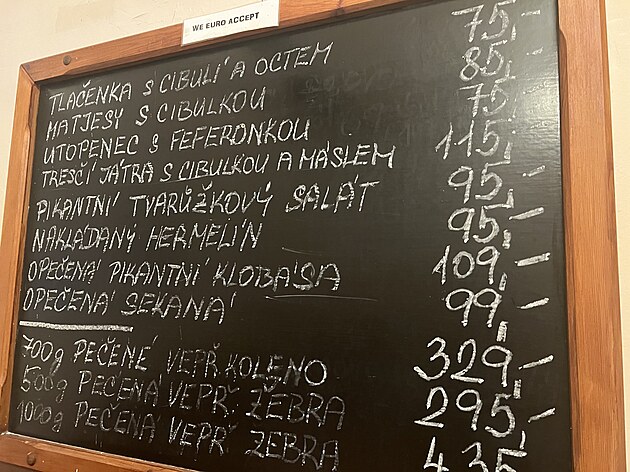 WE EURO ACCEPT
TLAČENKA S CIBULÍ A OCTEM 75,-
MATJESY S CIBULKOU 85,-
UTOPENEC S FEFERONKOU 75,-
TRESČÍ JÁTRA S CIBULKOU A MÁSLEM 115,-
PIKANTNÍ TVARŮŽKOVÝ SALÁT 95,-
NAKLÁDANÝ HERMELÍN 95,-
OPEČENÁ PIKANTNÍ KLOBÁSA 109,-
OPEČENÁ SEKANÁ 99,-
700g PEČENÉ VEPŘ. KOLENO 329,-
500g PEČENÁ VEPŘ. ŽEBRA 295,-
1000g PEČENÁ VEPŘ ŽEBRA 435,-